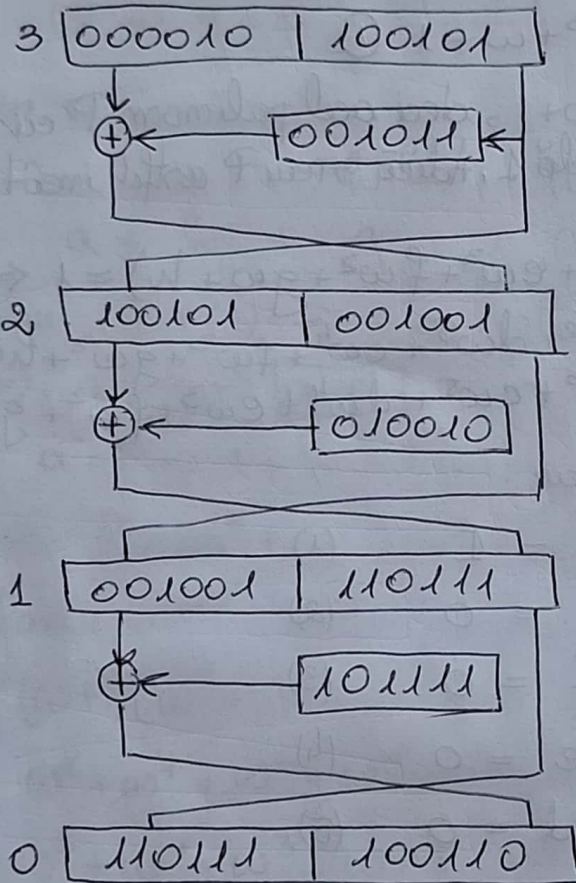 3 000010 | 100101
⊕ 001011
2 100101 | 001001
⊕ 010010
1 001001 | 110111
⊕ 101111
0 110111 | 100110